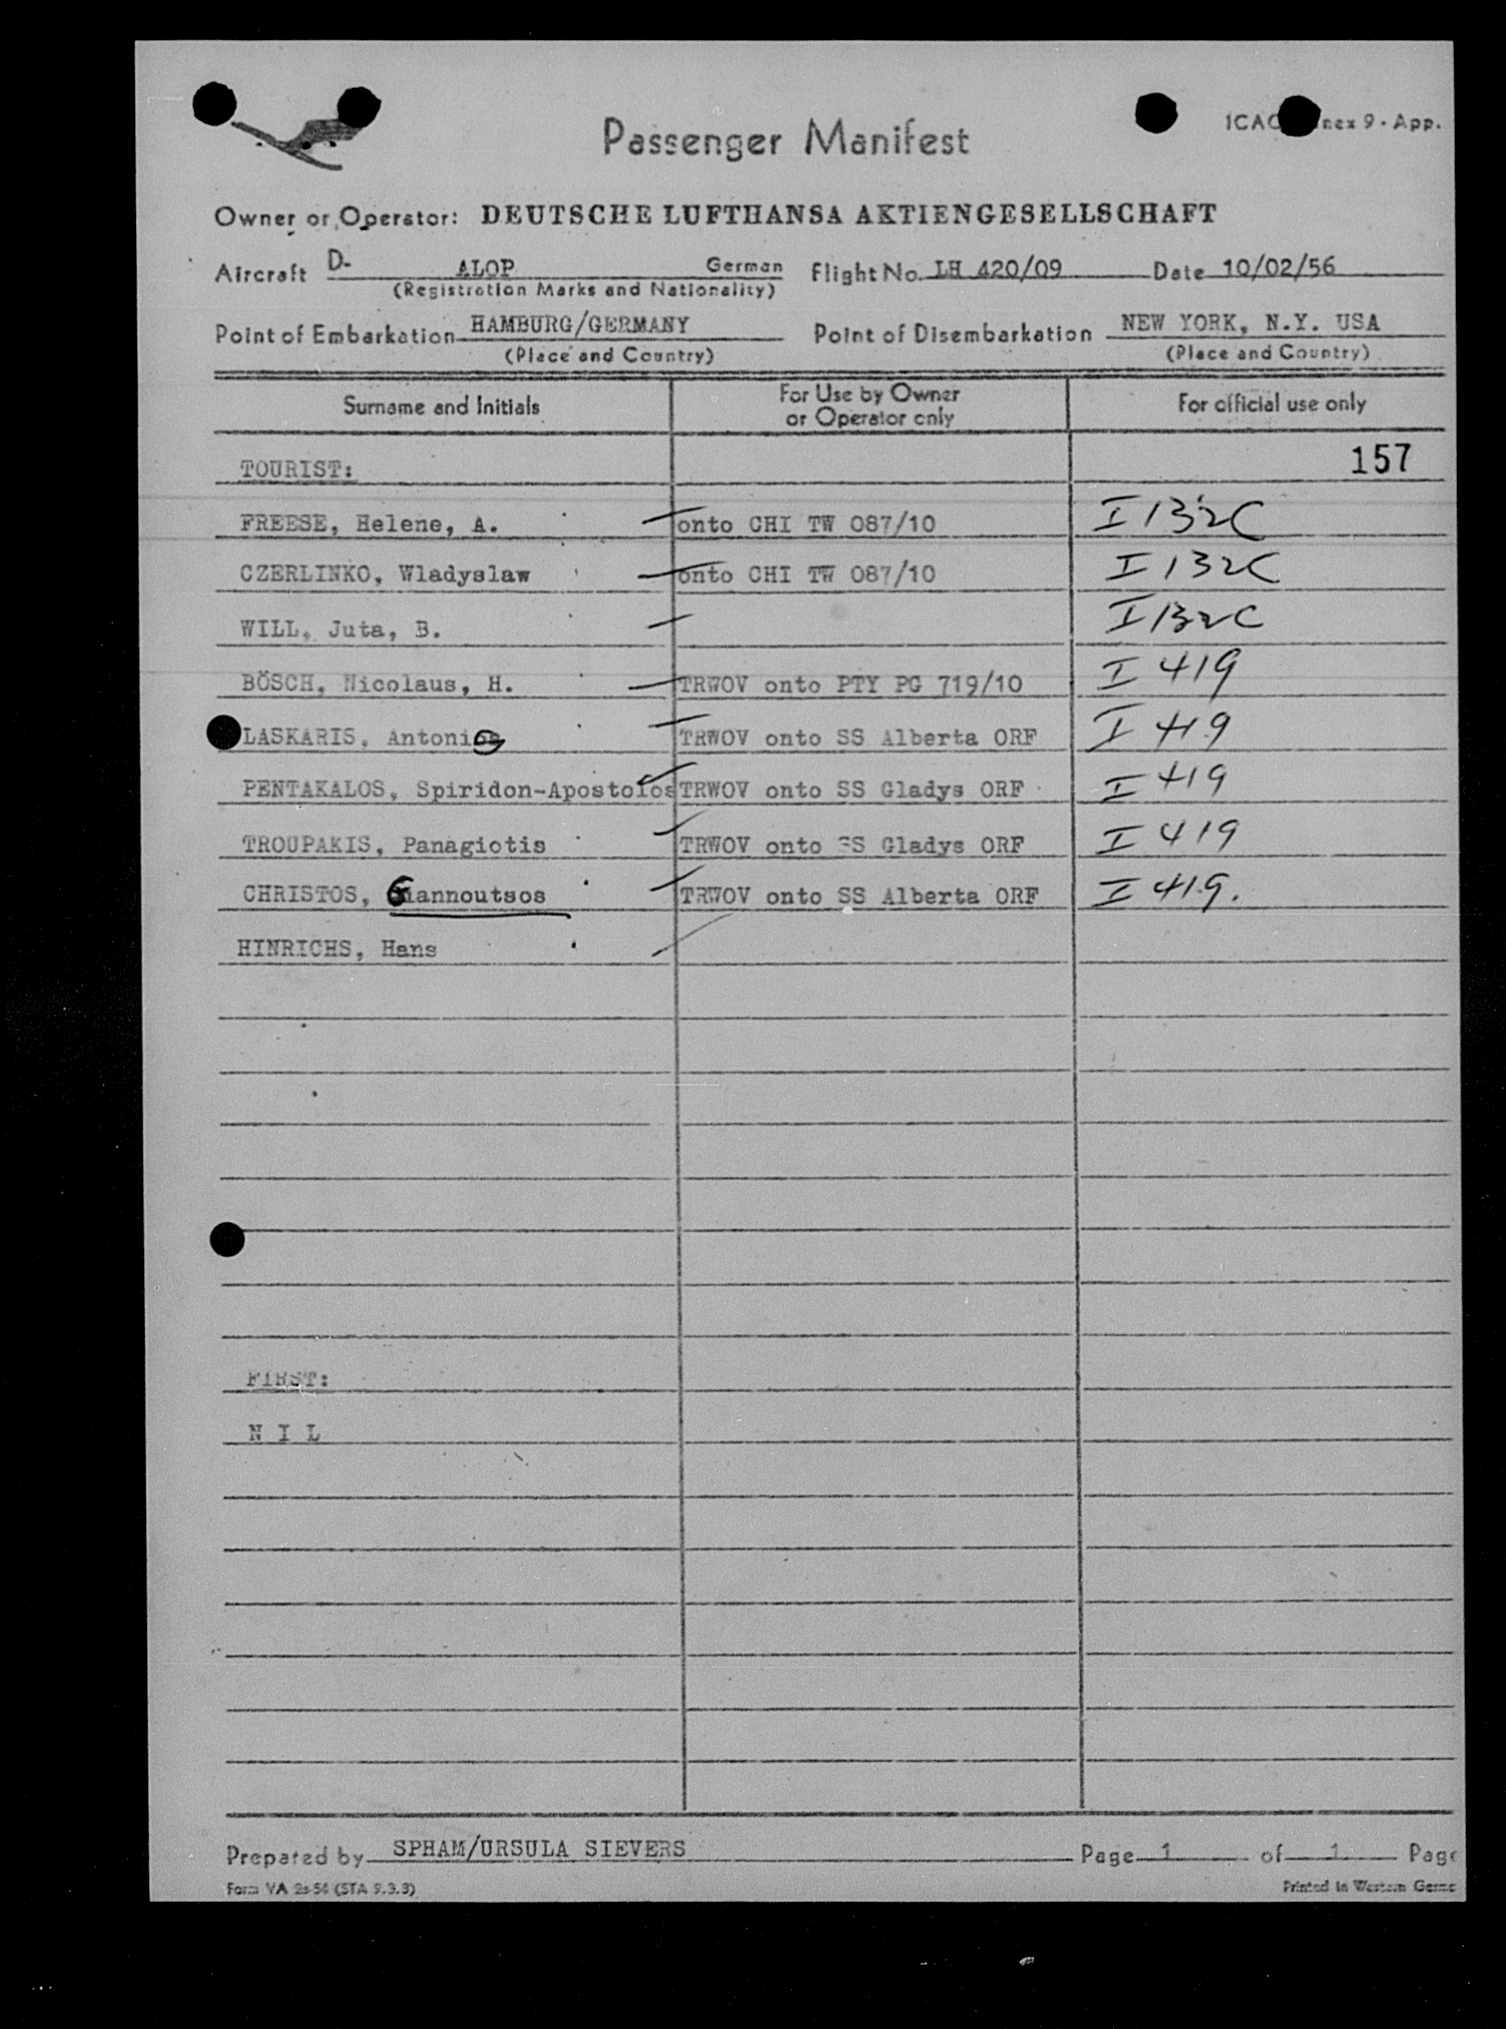 Passenger Manifest
Owner or Operator: DEUTSCHE LUFTHANSA AKTIENGESELLSCHAFT
Aircraft D- ALOP German Flight No. LH 420/09 Date 10/02/56
(Registration Marks and Nationality)
Point of Embarkation HAMBURG/GERMANY Point of Disembarkation NEW YORK, N.Y. USA
(Place and Country) (Place and Country)
Surname and Initials For Use by Owner or Operator only For official use only
TOURIST: 157
FREESE, Helene, A. onto CHI TW 087/10 I 132C
CZERLINKO, Wladyslaw onto CHI TW 087/10 I 132C
WILL, Juta, B. I 132C
BÖSCH, Nicolaus, H. TRWOV onto PTY PG 719/10 I 419
LASKARIS, Antonios TRWOV onto SS Alberta ORF I 419
PENTAKALOS, Spiridon-Apostolos TRWOV onto SS Gladys ORF I 419
TROUPAKIS, Panagiotis TRWOV onto SS Gladys ORF I 419
CHRISTOS, Giannoutsos TRWOV onto SS Alberta ORF I 419.
HINRICHS, Hans
FIRST:
N I L
Prepared by SPHAM/URSULA SIEVERS Page 1 of 1 Page
Form VA 2s-56 (STA 9.3.3) Printed in Western